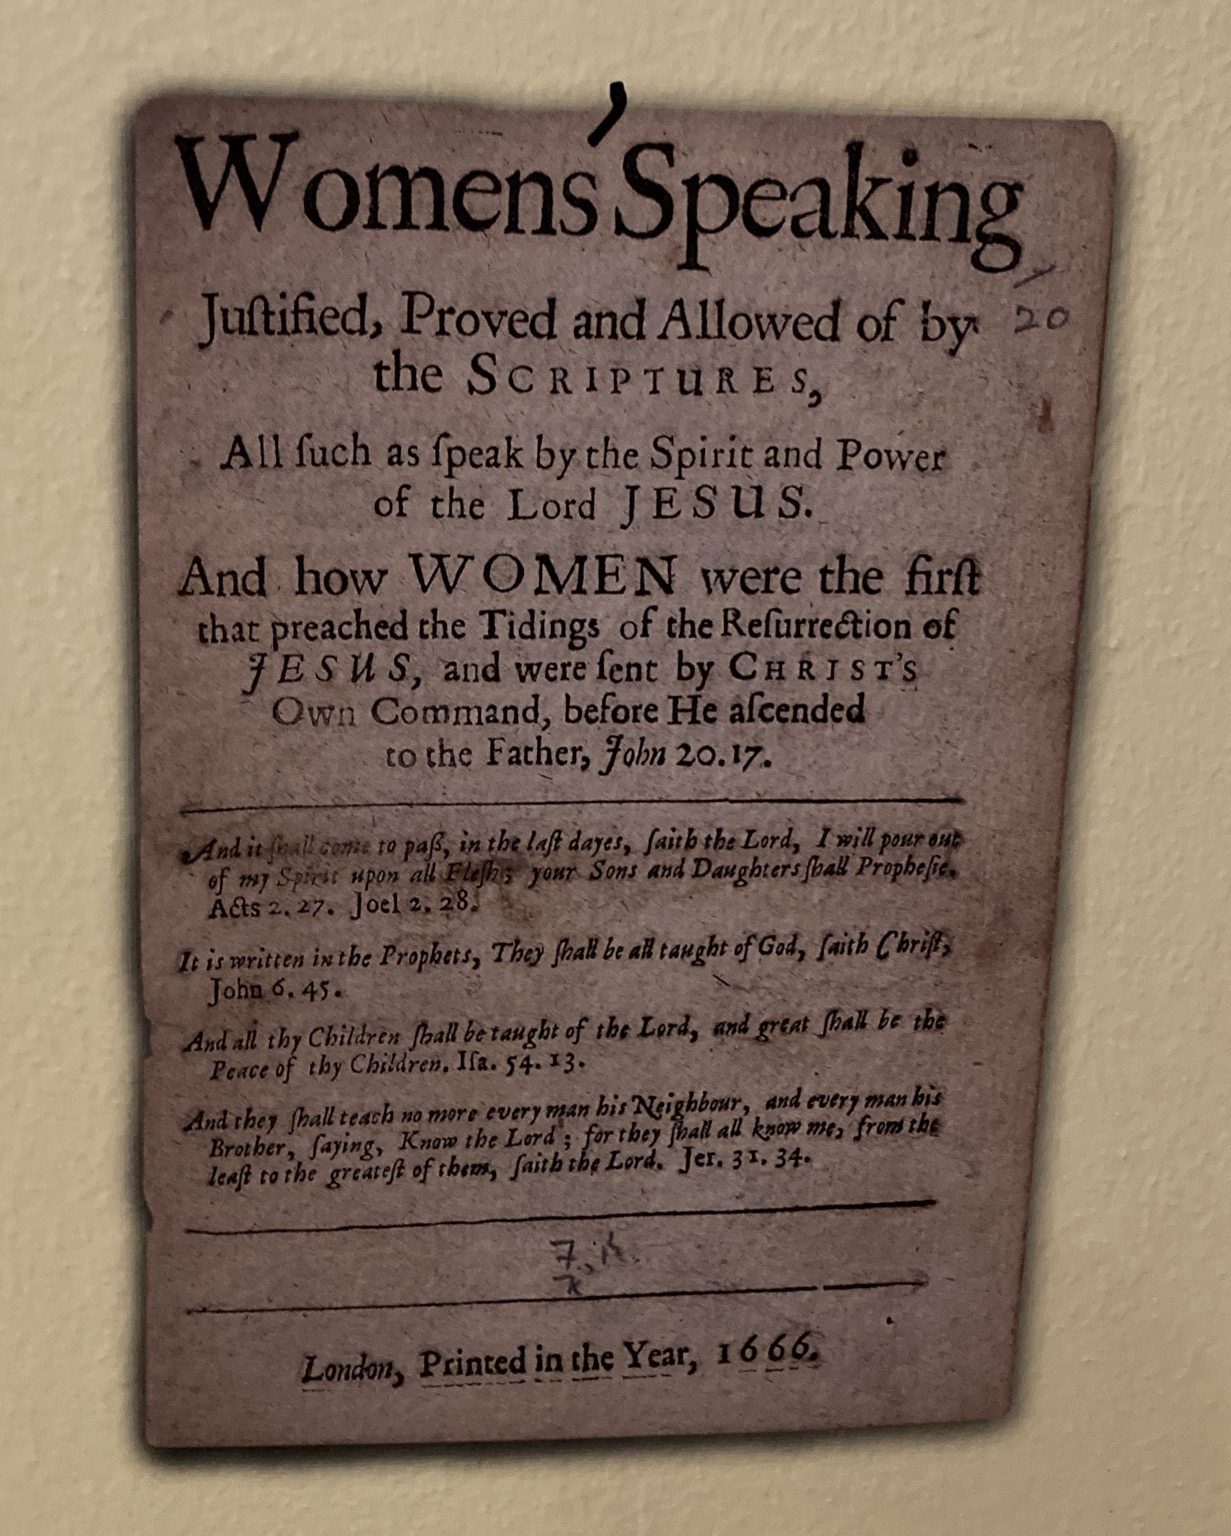 Womens' Speaking
Juſtified, Proved and Allowed of by
the SCRIPTURES,
20
All ſuch as ſpeak by the Spirit and Power
of the Lord JESUS.
And how WOMEN were the firſt
that preached the Tidings of the Reſurrection of
JESUS, and were ſent by CHRIST'S
Own Command, before He aſcended
to the Father, John 20.17.
And it ſhall come to paß, in the laſt dayes, ſaith the Lord, I will pour out
of my Spirit upon all Fleſh; your Sons and Daughters ſhall Propheſie.
Acts 2. 27. Joel 2. 28.
It is written in the Prophets, They ſhall be all taught of God, ſaith Chriſt,
John 6. 45.
And all thy Children ſhall be taught of the Lord, and great ſhall be the
Peace of thy Children. Iſa. 54. 13.
And they ſhall teach no more every man his Neighbour, and every man his
Brother, ſaying, Know the Lord; for they ſhall all know me, from the
leaſt to the greateſt of them, ſaith the Lord. Jer. 31. 34.
London, Printed in the Year, 1666.